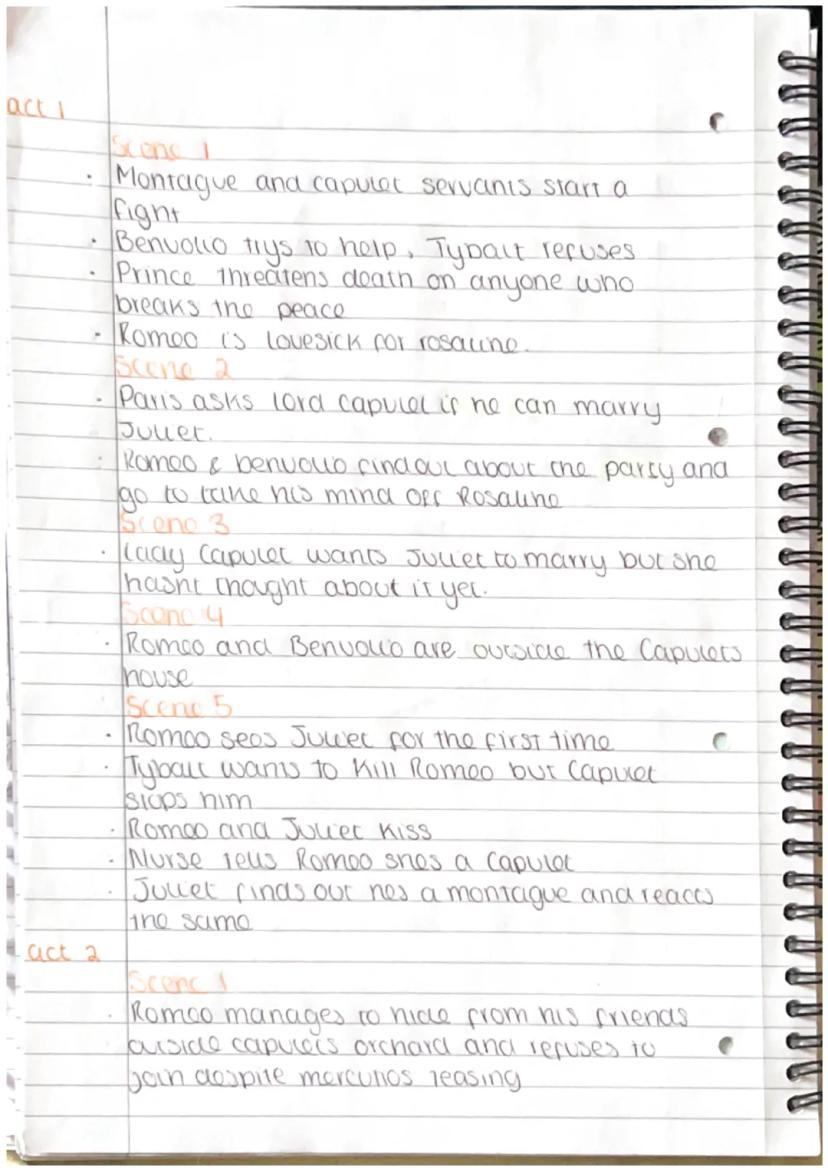 act 1
Scene 1
· Montague and capulet servants start a
fight
· Benvolio trys to help, Tybalt refuses
· Prince threatens death on anyone who
breaks the peace
· Romeo is lovesick for rosaline.
Scene 2
· Paris asks lord capulet if he can marry
Juliet.
· Romeo & benvolio find out about the party and
go to take his mind off Rosaline
Scene 3
· Lady Capulet wants Juliet to marry but she
hasnt thought about it yet.
Scene 4
· Romeo and Benvolio are outside the Capulets
house
Scene 5
· Romeo sees Juliet for the first time
· Tybalt wants to kill Romeo but Capulet
stops him
· Romeo and Juliet kiss
· Nurse tells Romeo shes a Capulet
· Juliet finds out hes a montague and reacts
the same
act 2
Scene 1
· Romeo manages to hide from his friends
outside capulets orchard and refuses to
join despite mercutios teasing